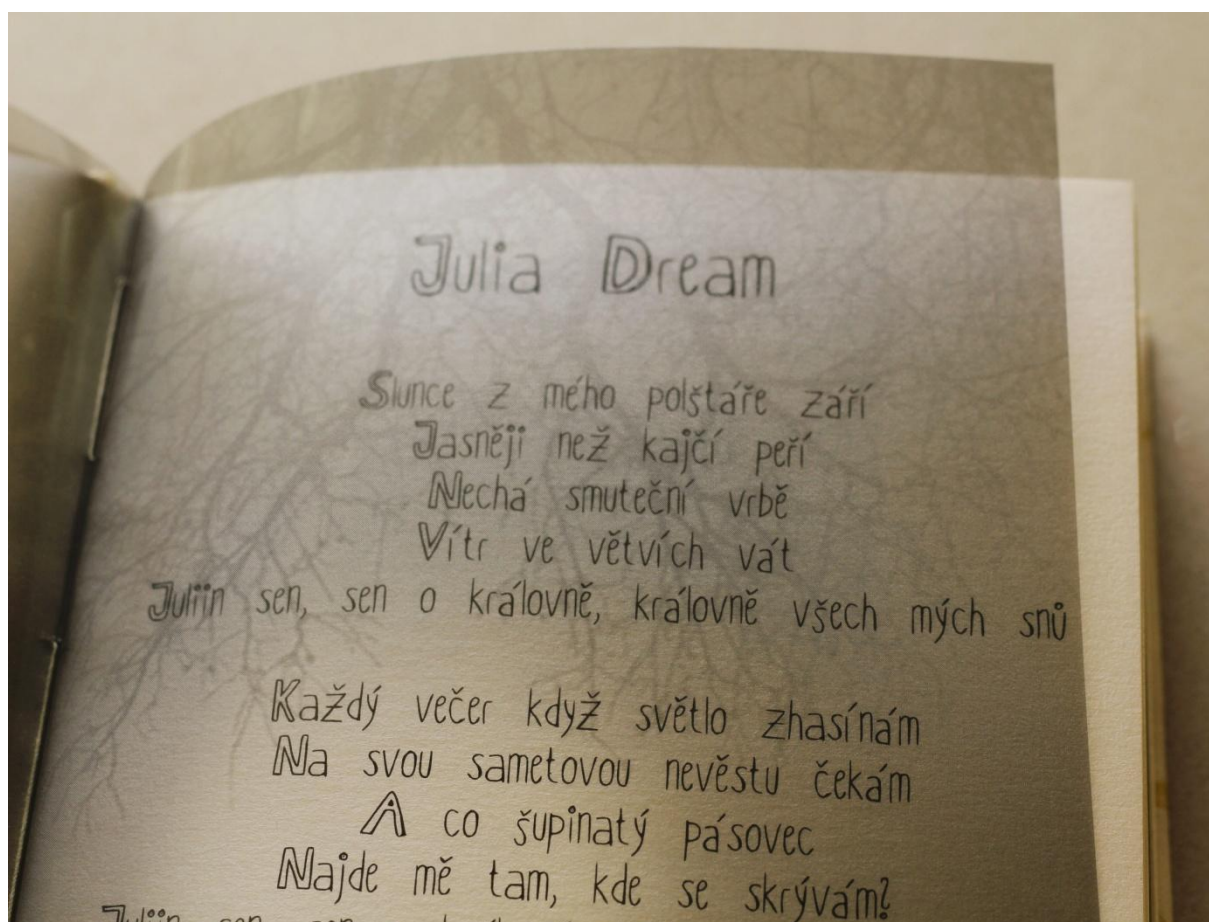 Julia Dream
Slunce z mého polštáře září
Jasněji než kajčí peří
Nechá smuteční vrbě
Vítr ve větvích vát
Juliin sen, sen o královně, královně všech mých snů
Každý večer když světlo zhasínám
Na svou sametovou nevěstu čekám
A co šupinatý pásovec
Najde mě tam, kde se skrývám?
Juliin sen, sen